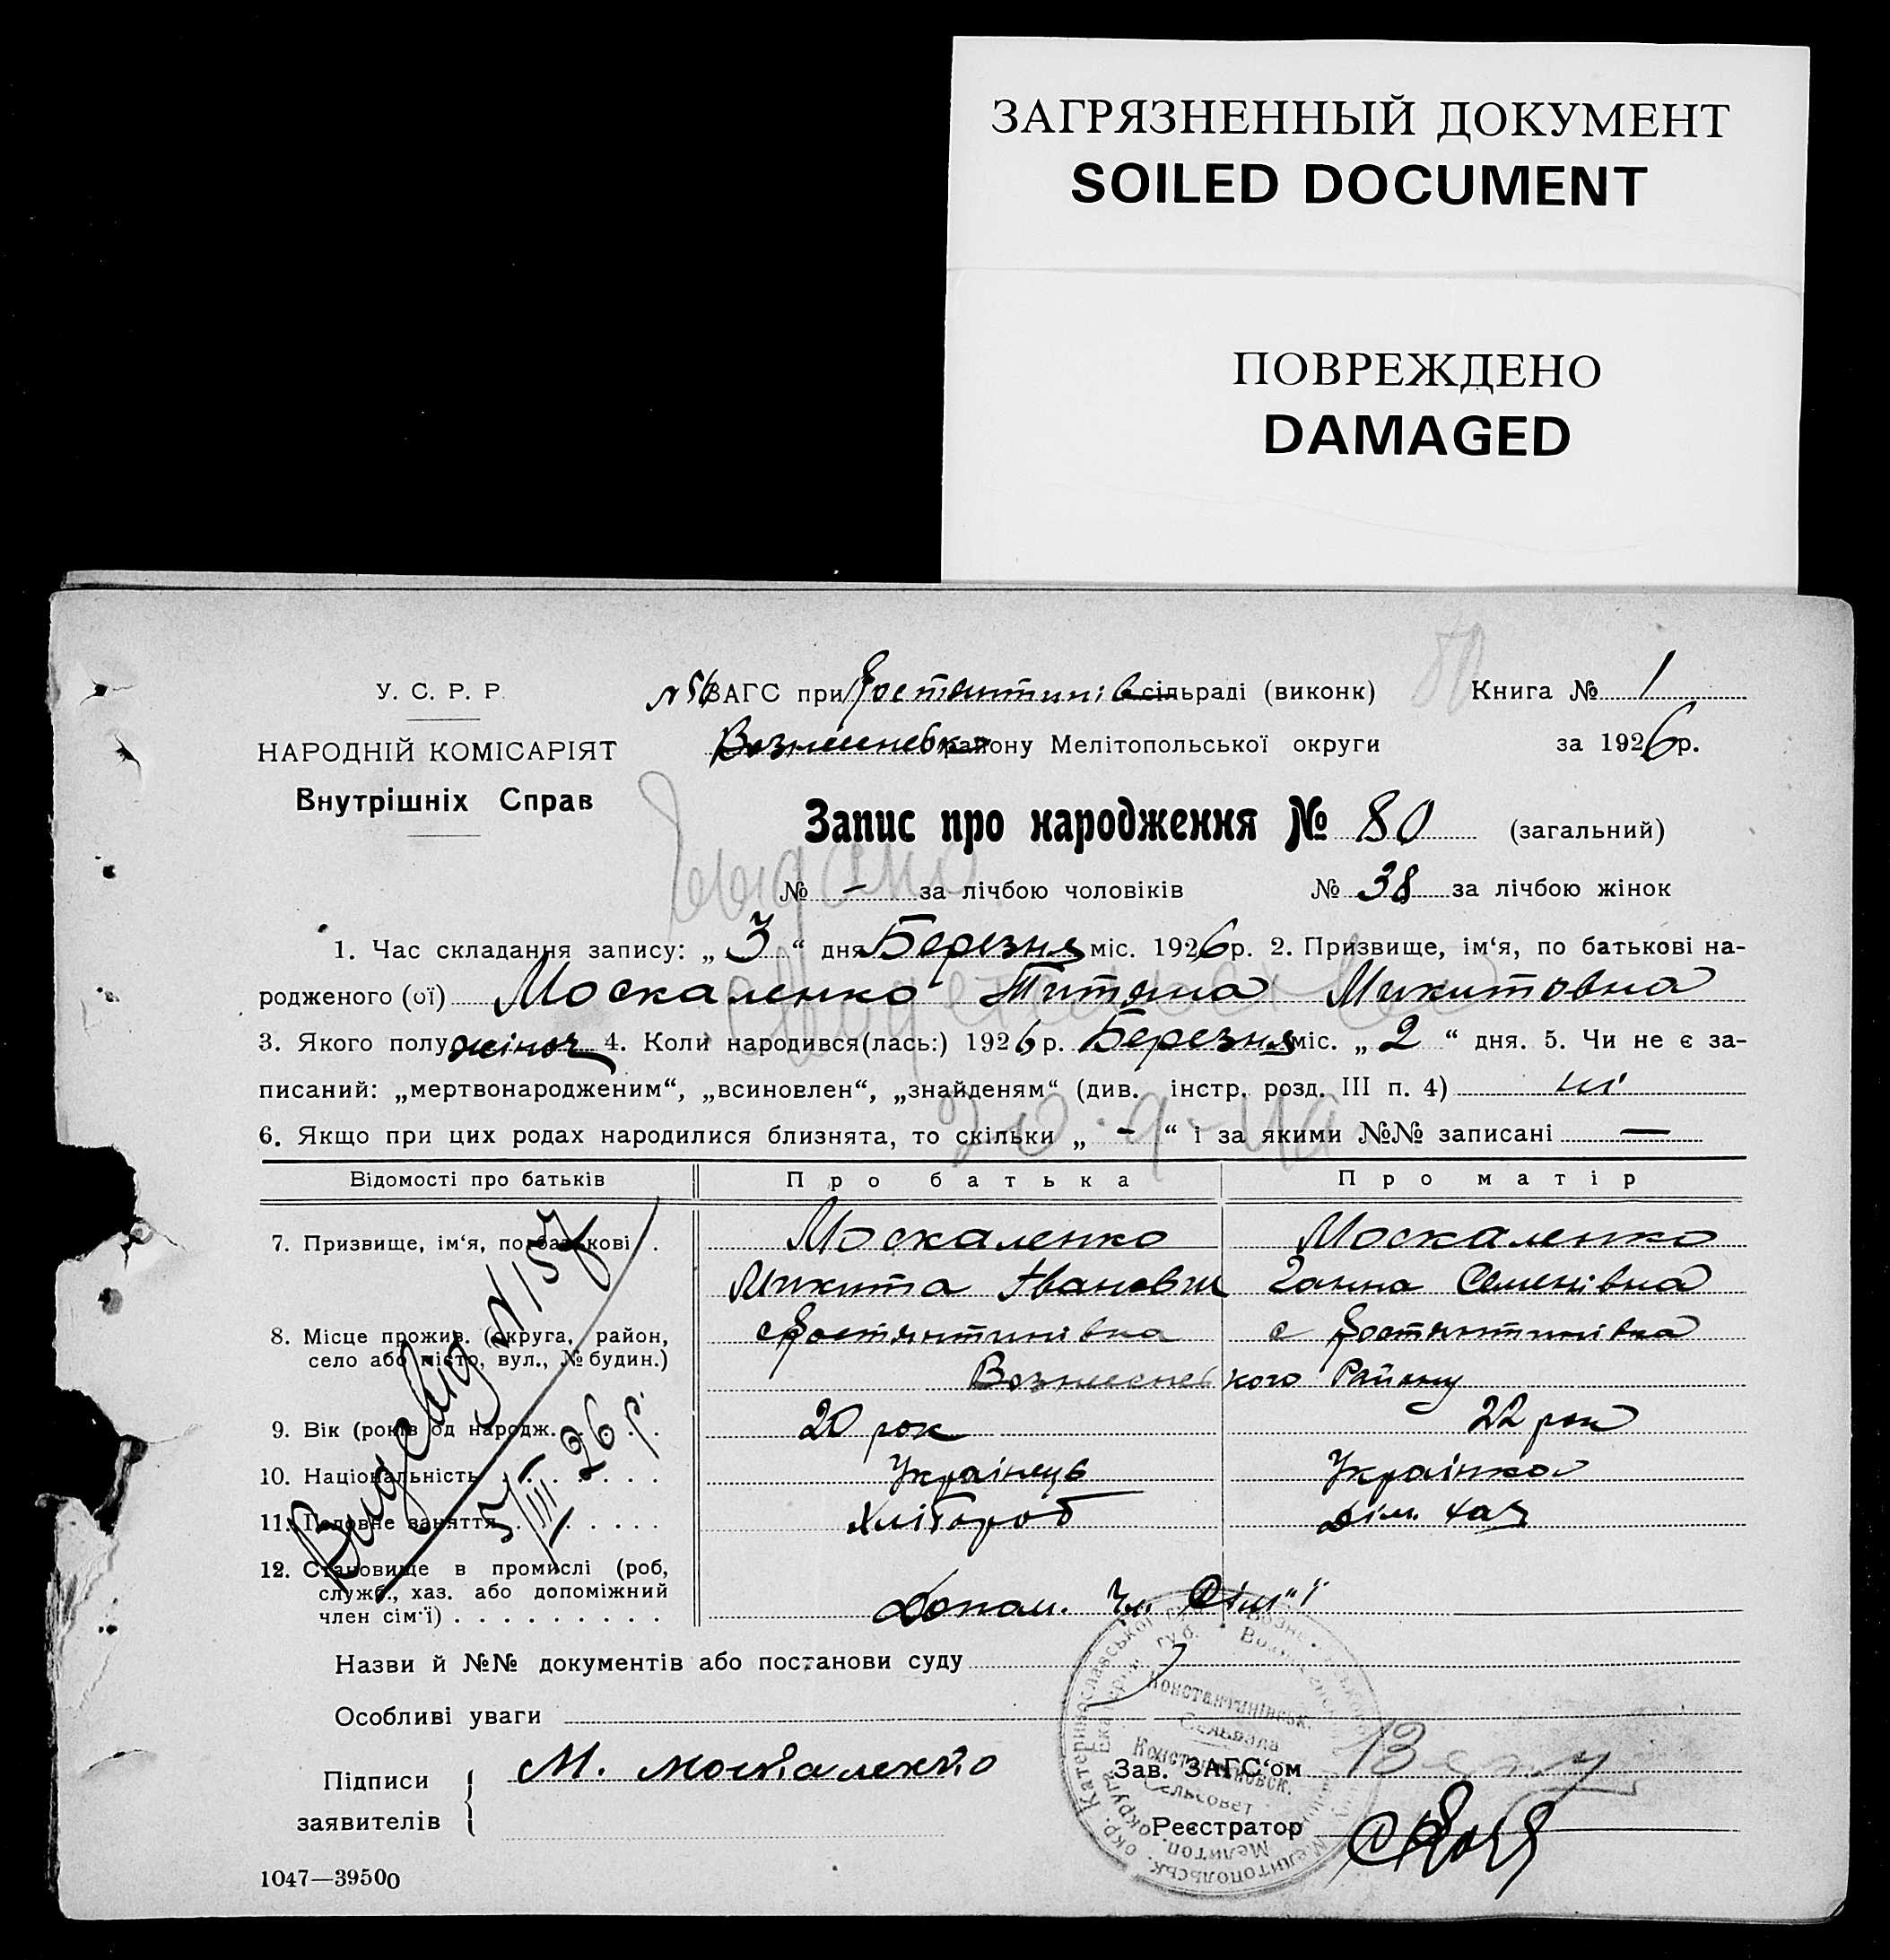 ЗАГРЯЗНЕННЫЙ ДОКУМЕНТ
SOILED DOCUMENT
ПОВРЕЖДЕНО
DAMAGED
У. С. Р. Р.
НАРОДНІЙ КОМІСАРІЯТ
Внутрішніх Справ
ЗАГС при Костянтинів сільраді (виконк) Книга № 1
району Мелітопольської округи за 1926 р.
Запис про народження № 80 (загальний)
№ - за лічбою чоловіків № 38 за лічбою жінок
1. Час складання запису: „ 3 “ дня Березня міс. 1926 р. 2. Призвище, ім‘я, по батькові на-
родженого (ої) Москаленко Титяна Микитовна
3. Якого полу жіноч 4. Коли народився(лась:) 1926 р. Березня міс. „ 2 “ дня. 5. Чи не є за-
писаний: „мертвонародженим“, „всиновлен“, „знайденям“ (див. інстр. розд. III п. 4) ні
6. Якщо при цих родах народилися близнята, то скільки „ - “ і за якими №№ записані —
Відомості про батьків Про батька Про матір
7. Призвище, ім‘я, по батькові . Москаленко Москаленко
Микита Іванович Ганна Семенівна
8. Місце прожив. (округа, район, с Костянтинівка с Костянтинівка
село або місто, вул., № будин.)
Вознесенського Району
9. Вік (років од народж. 20 рок 22 рок
10. Національність Українець Українка
11. Головне заняття Хлібороб Дім. хаз
12. Становище в промислі (роб,
служб., хаз. або допоміжний
член сім‘ї) Допом. Чл. Сім"ї
№ 157
5/III 26 р.
Назви й №№ документів або постанови суду
Особливі уваги
Підписи М. Москаленко Зав. ЗАГС‘ом
заявителів Реєстратор
Константинівськ.
Сельрада
Константиновск.
Сельсовет
1047—39500